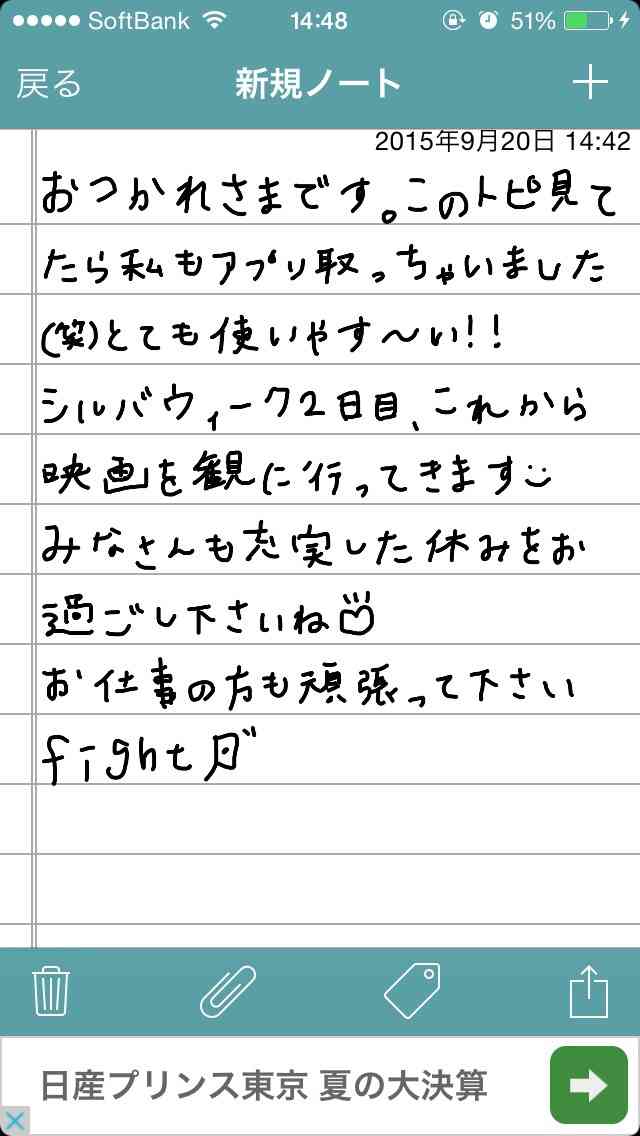 ●●●●● SoftBank 14:48 51%
戻る 新規ノート +
2015年9月20日 14:42
おつかれさまです。このトピ見て
たら私もアプリ取っちゃいました
(笑)とても使いやす〜い!!
シルバウィーク2日目、これから
映画を観に行ってきます
みなさんも充実した休みをお
過ごし下さいね
お仕事の方も頑張って下さい
fight
日産プリンス東京 夏の大決算